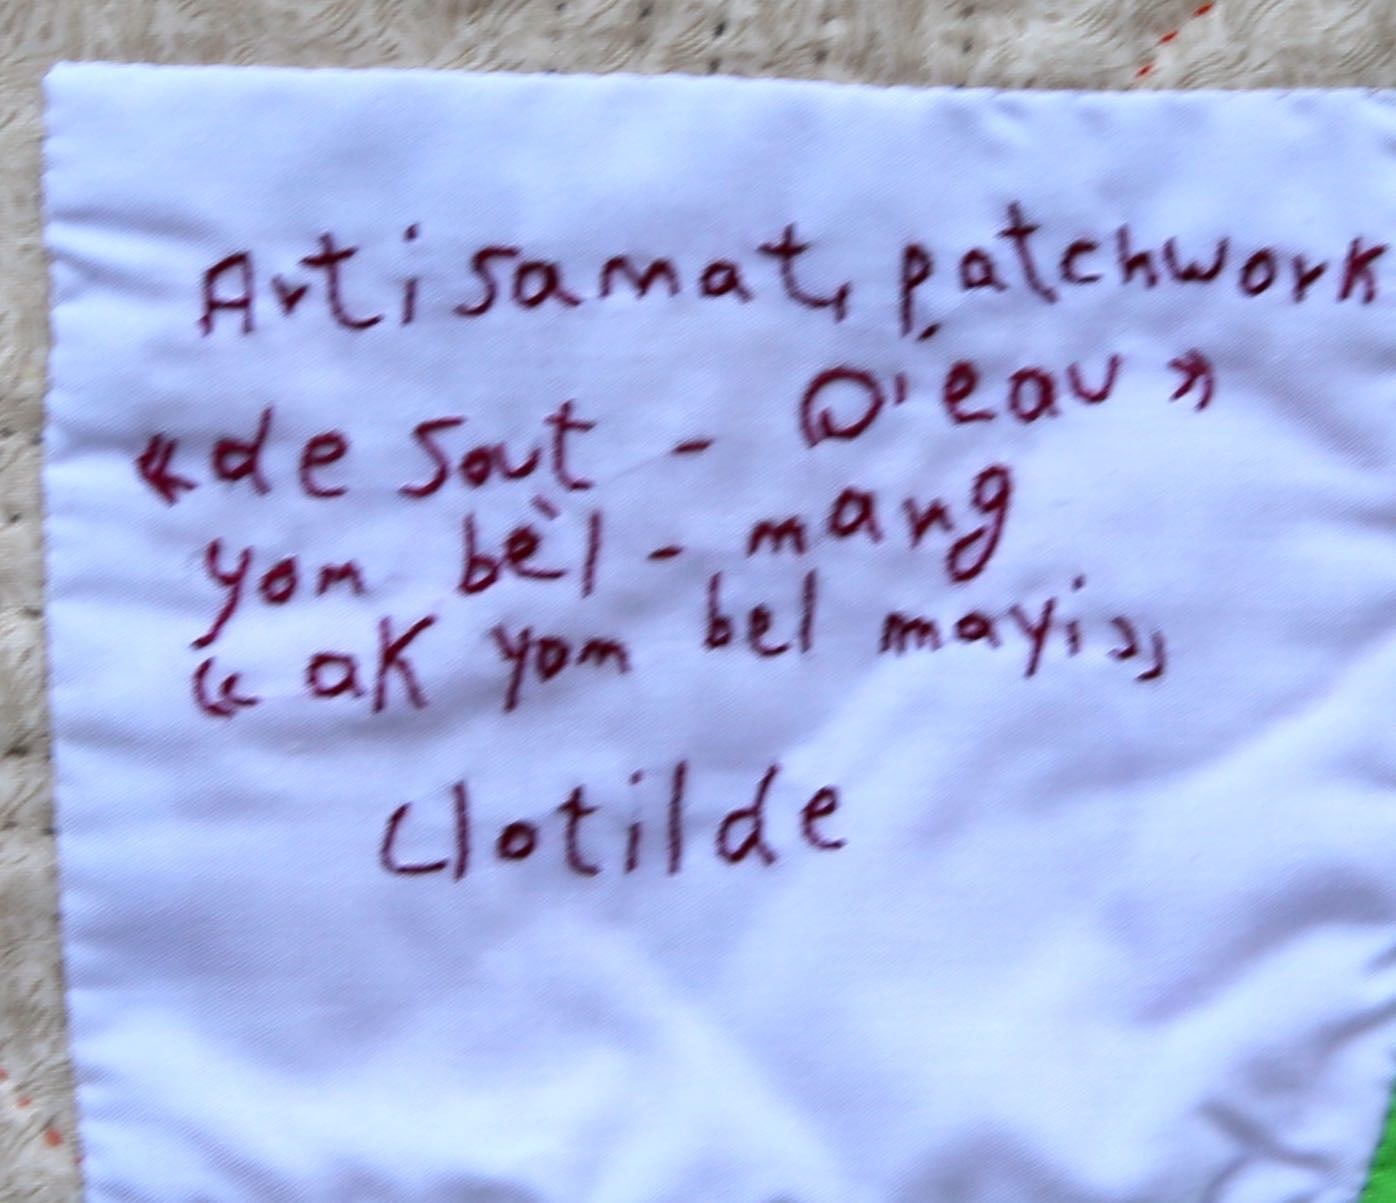 Artisamat, patchwork
«de Sout - D'eau»
yom bèl - mang
« ak yom bel mayi»
Clotilde